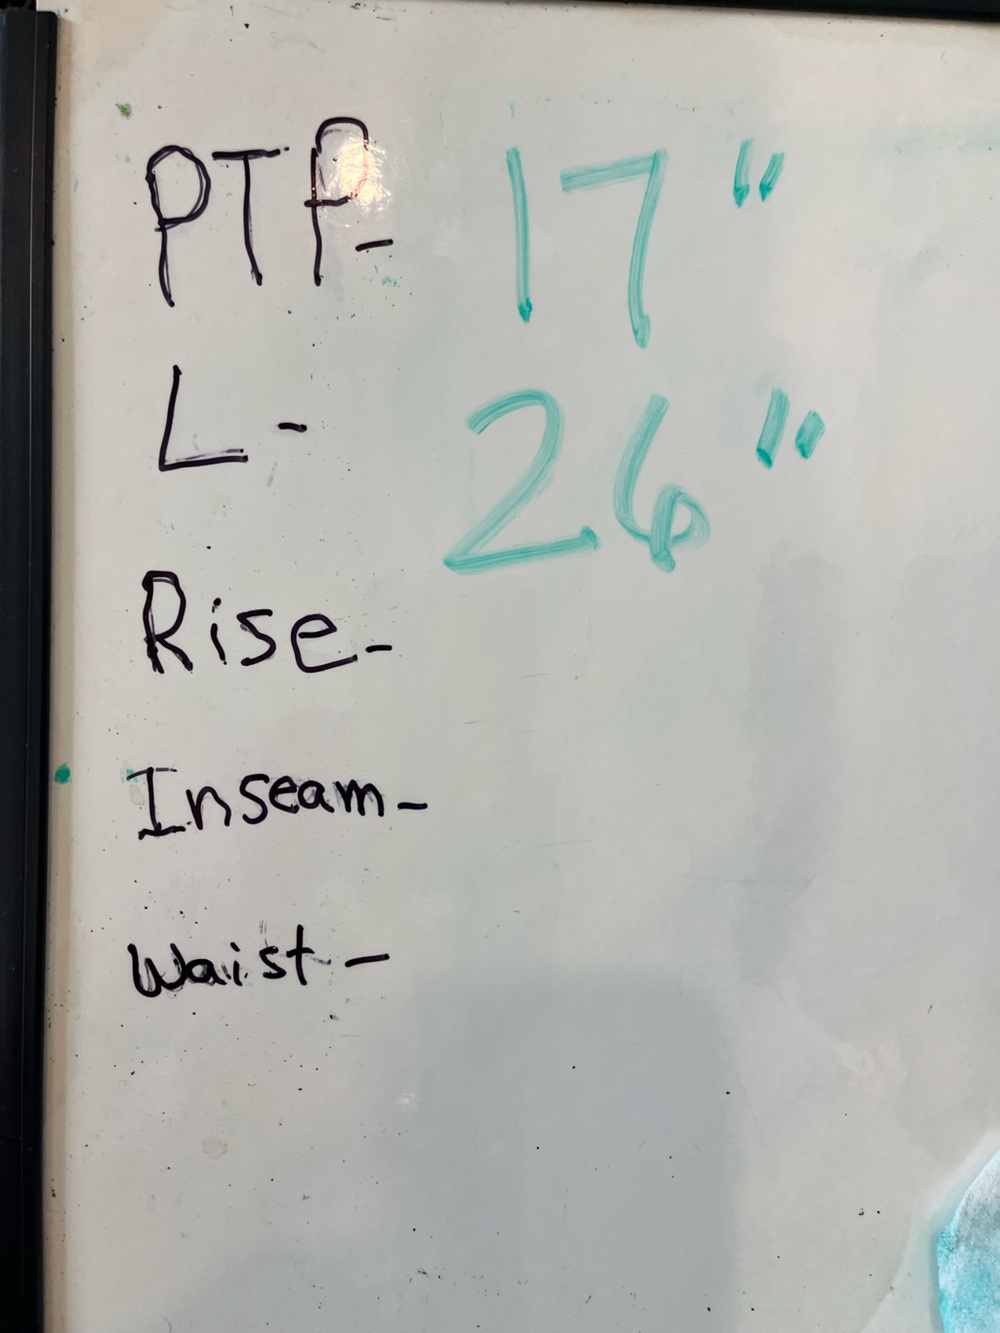 PTP- 17"
L- 26"
Rise-
Inseam-
Waist-